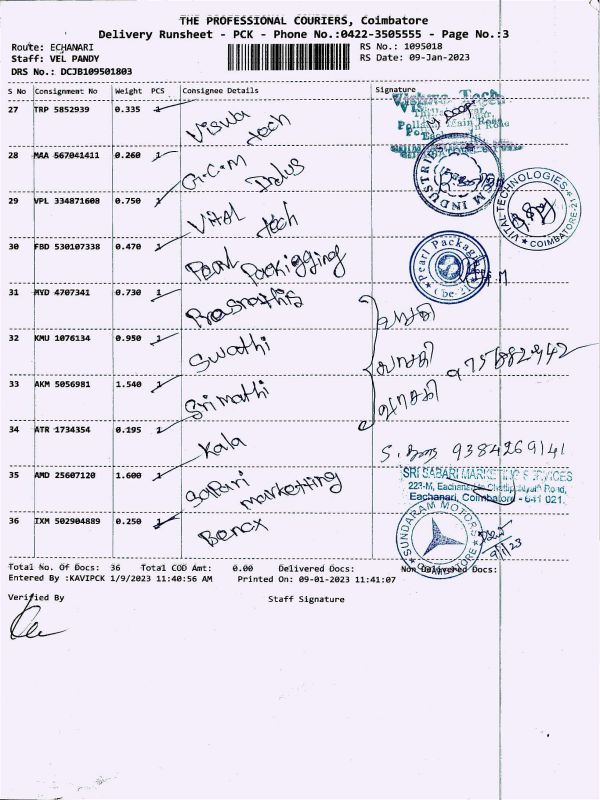 THE PROFESSIONAL COURIERS, Coimbatore
Delivery Runsheet - PCK - Phone No.:0422-3505555 - Page No.:3
Route: ECHANARI
RS No.: 1095018
Staff: VEL PANDY
RS Date: 09-Jan-2023
DRS No.: DCJB109501803
S No Consignment No Weight PCS Consignee Details Signature
27 TRP 5852939 0.335 1 Viswa tech
28 MAA 567041411 0.260 1 G.C.M Indus
29 VPL 334871608 0.750 1 Vital tech
VITAL TECHNOLOGIES COIMBATORE-21
30 FBD 530107338 0.470 1 Pearl Packigging
Pearl Packaging Cbe-21
31 MVD 4707341 0.730 1
32 KMU 1076134 0.950 1 Swathi
33 AKM 5056981 1.540 1 Srimathi
34 ATR 1734354 0.195 1 Kala
S. 9384269141
35 AMD 25607120 1.600 1 Safari marketting
SRI SABARI MARKETING SERVICES
Eachanari, Coimbatore - 641 021.
36 IXM 502904889 0.250 1 Bencx
SUNDARAM MOTORS COIMBATORE
9/1/23
Total No. Of Docs: 36 Total COD Amt: 0.00 Delivered Docs: Non Delivered Docs:
Entered By :KAVIPCK 1/9/2023 11:40:56 AM Printed On: 09-01-2023 11:41:07
Verified By Staff Signature